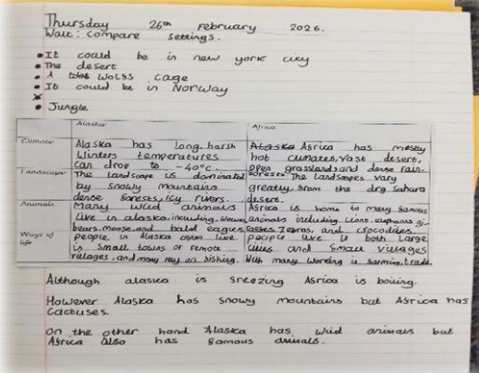 Thursday 26th February 2026.
Walt: compare settings.
• It could be in new york city
• The desert
• A wolfs cage
• It could be in Norway
• Jungle
Alaska Africa
Climate
Alaska has long, harsh
winters temperatures
can drop to -40°c.
Africa has mostly
hot climates, vast desert,
open grassland and dense rain-
forests.
Landscape
The landscape is dominated
by snowy mountains
dense forests, icy rivers.
The landscapes vary
greatly from the dry Sahara
desert.
Animals
Many wild animals
live in alaska, including
bears, moose, and bald eagles
Africa is home to many famous
animals including Lions, elephants, gi-
raffes, zebras, and crocodiles
Ways of
life
people in Alaska often live
in small towns or remote
villages, and may rely on fishing.
people live in both large
cities and small villages
with many working in farming, trade.
Although alaska is freezing Africa is boiling.
However Alaska has snowy mountains but Africa has
Cactuses.
On the other hand Alaska has wild animals but
Africa also has famous animals.